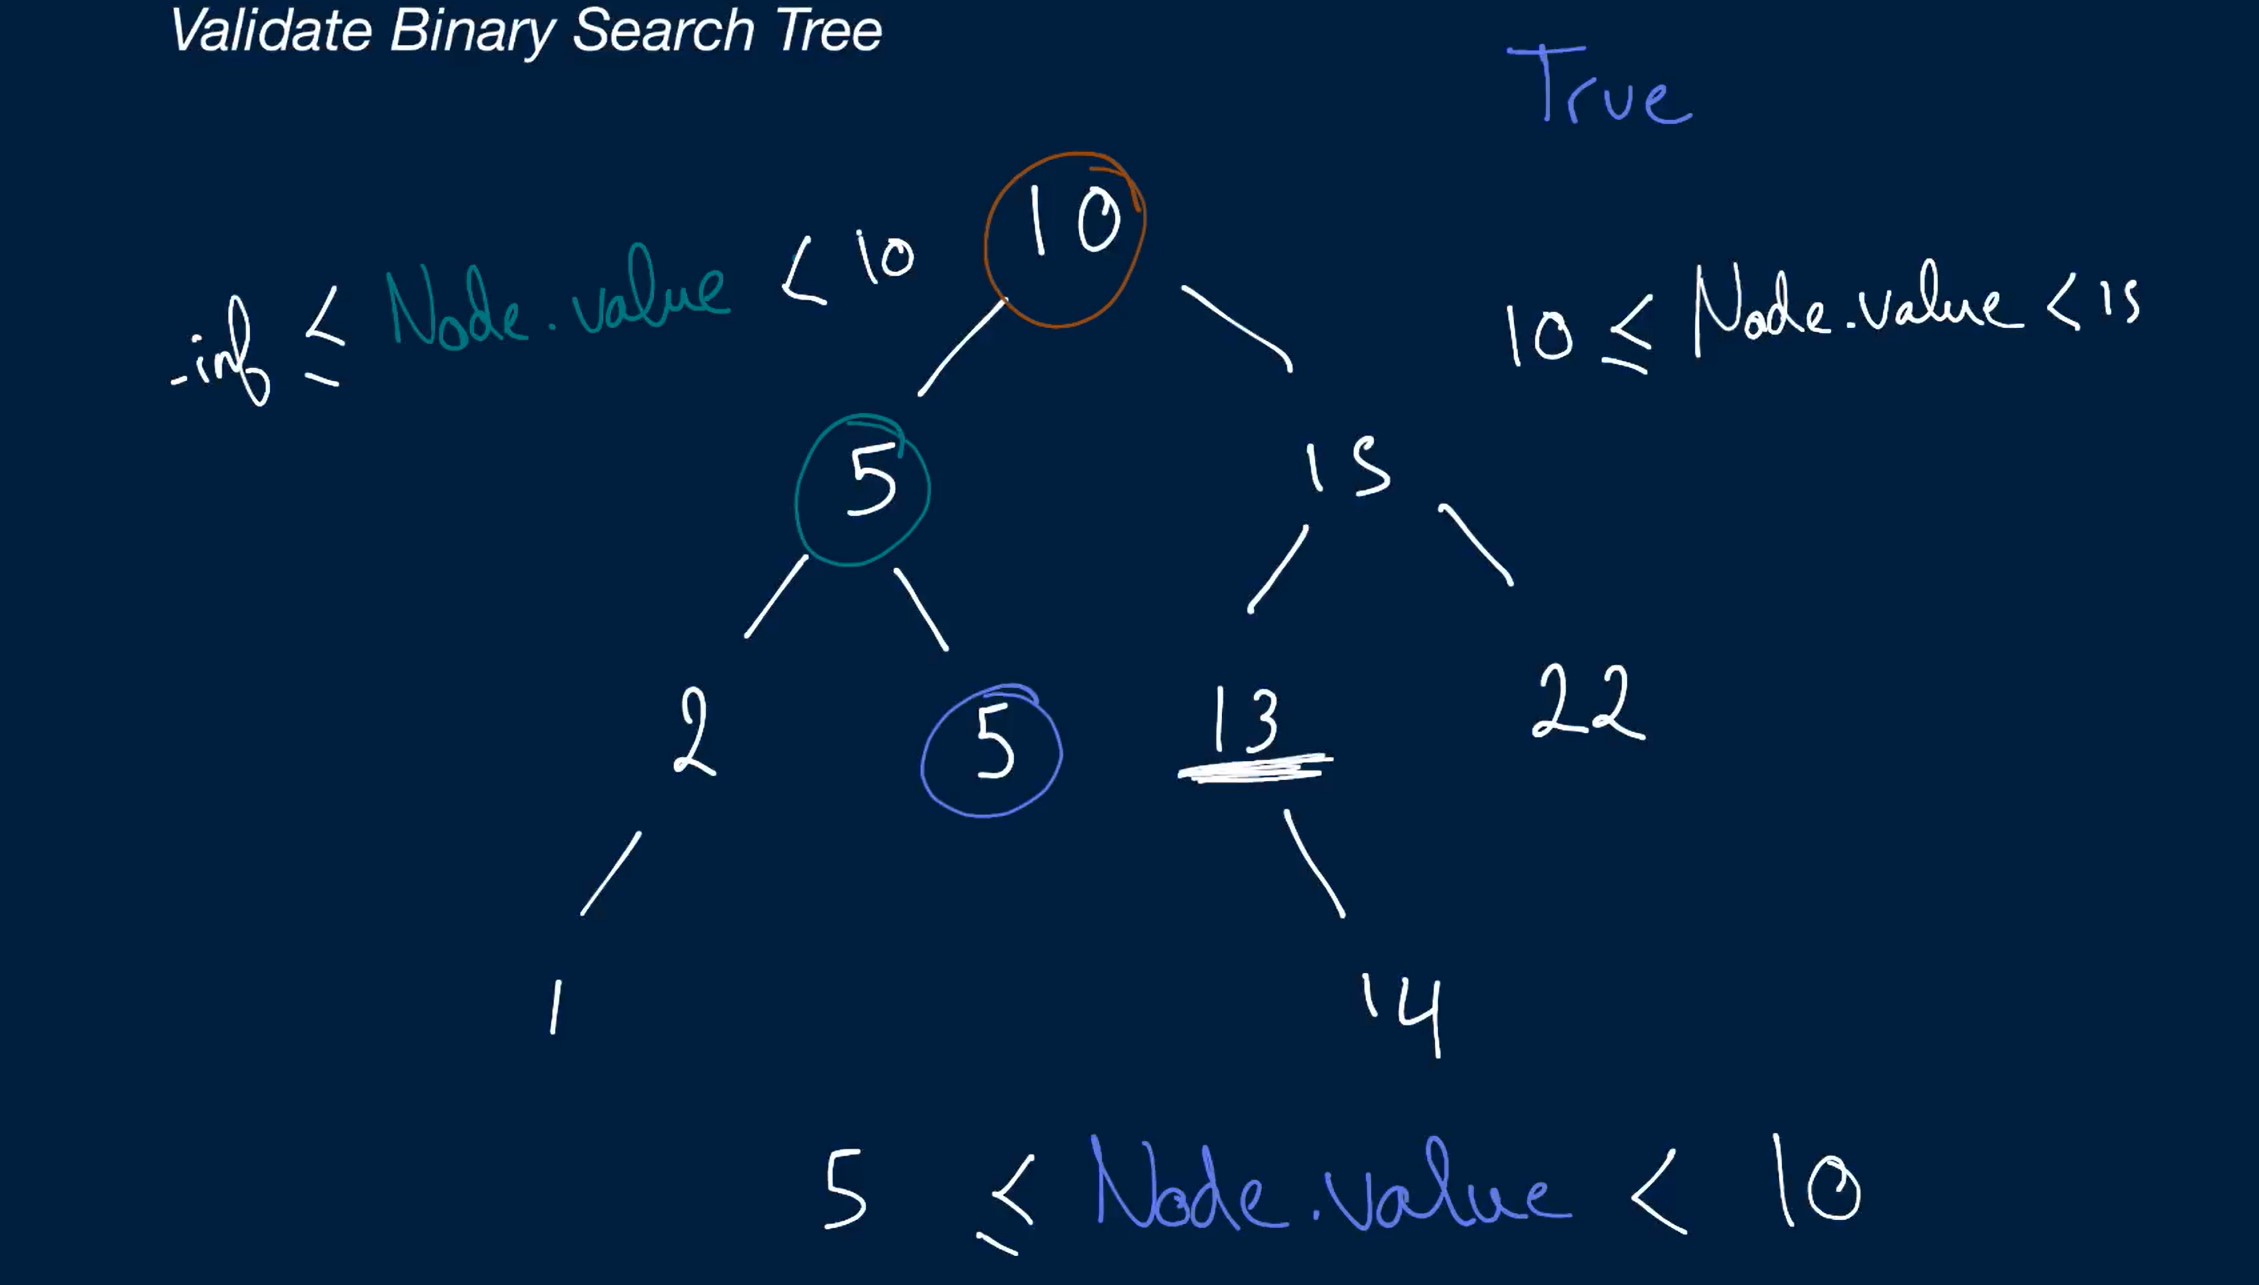 Validate Binary Search Tree
True
10
-inf ≤ Node.value < 10
10 ≤ Node.value < 15
5
15
2
5
13
22
1
14
5 ≤ Node.value < 10